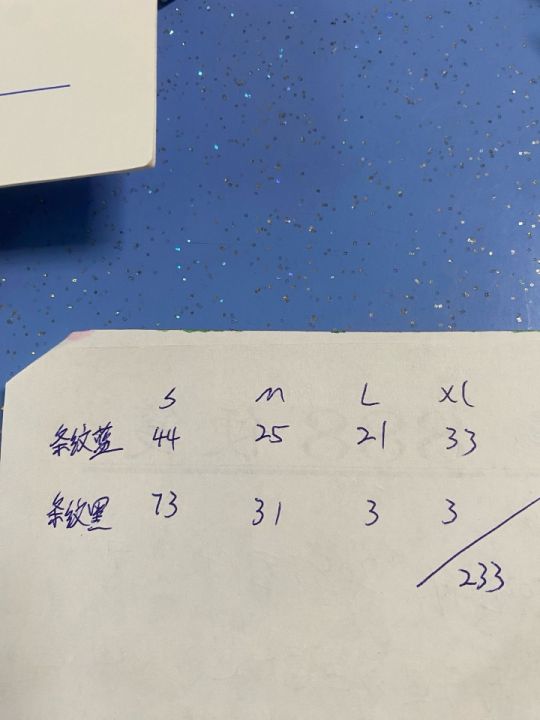 S M L XL
条纹蓝 44 25 21 33
条纹黑 73 31 3 3
233